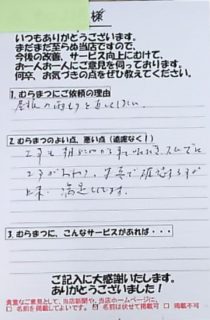 様
いつもありがとうございます。
まだまだ至らぬ当店ですので、
今後の改善、サービス向上にむけて、
お一人お一人にご意見を伺っております。
何卒、お気づきの点をぜひ教えてください。
1.むらまつにご依頼の理由
屋根の雨もりを直してほしい。
2.むらまつのよい点、悪い点（遠慮なく！）
工事も朝早くから
工事が 写真で確認する事が
出来 満足してます。
3.むらまつに、こんなサービスがあれば・・・
ご記入に大感謝いたします。
ありがとうございました！
貴重なご意見として、当店新聞や、当店ホームページに
□ 名前を掲載してよいです。 ☑ 名前は伏せて掲載可 □ 掲載不可